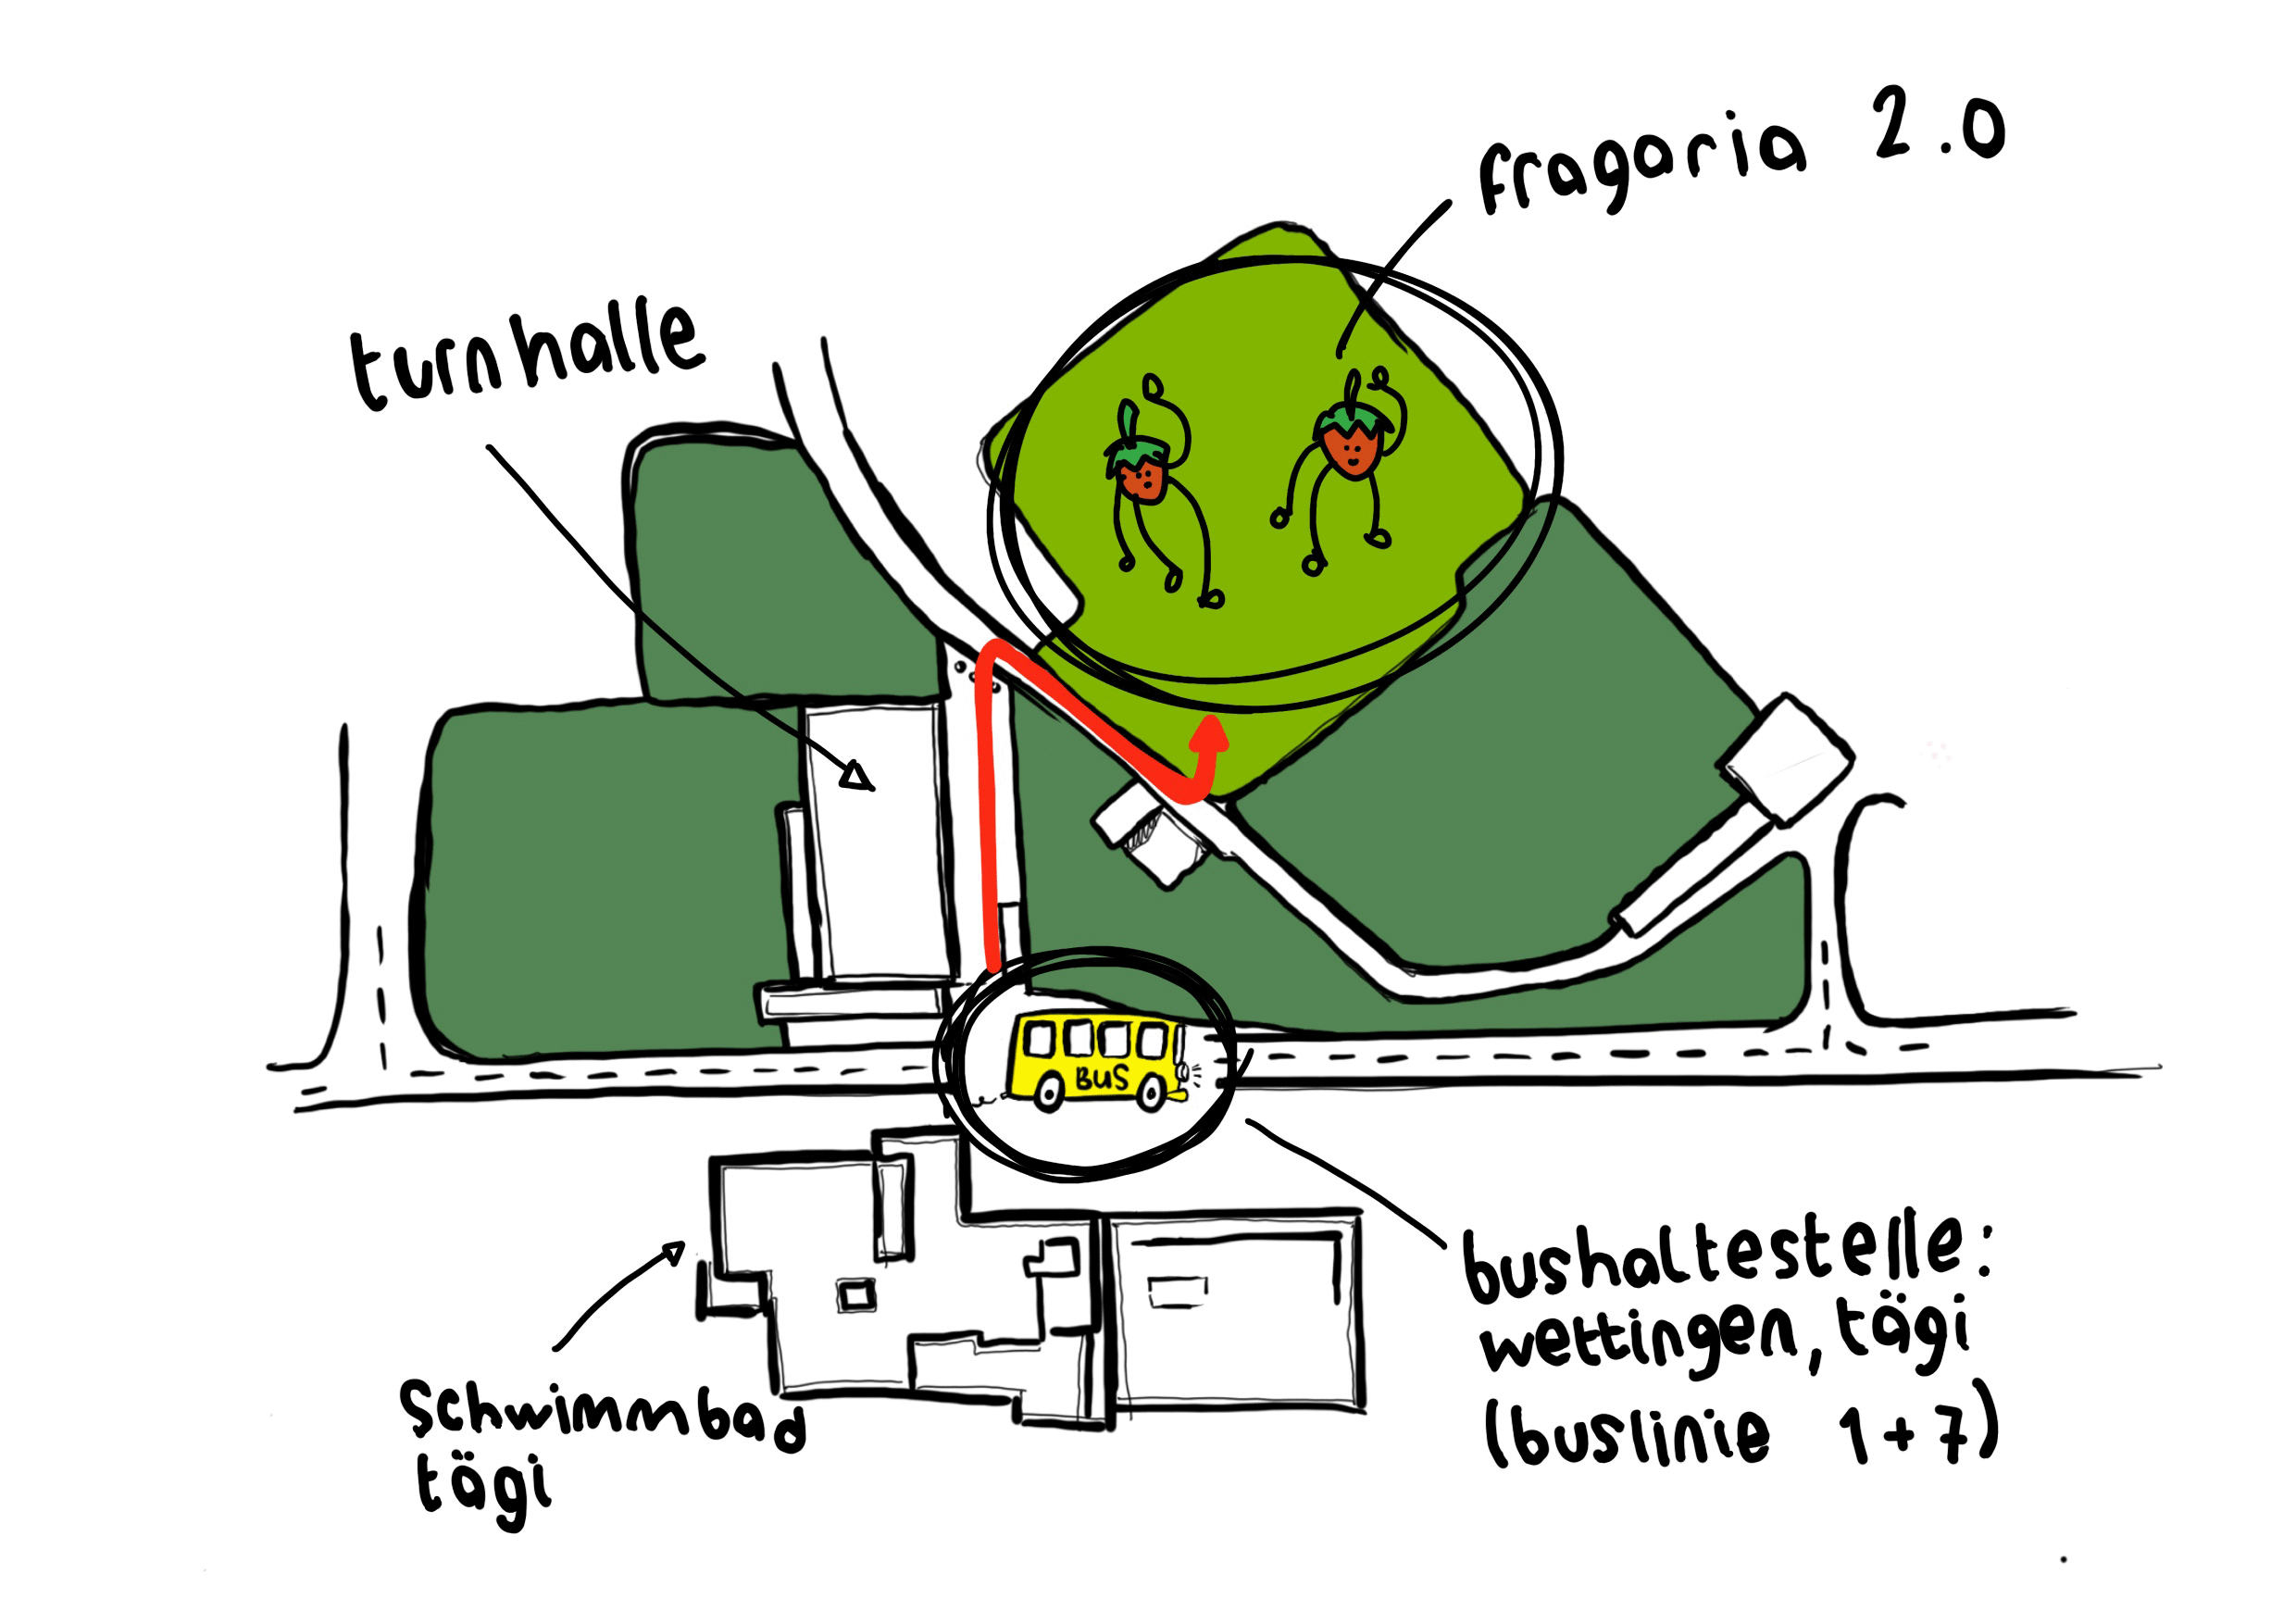 fragaria 2.0
turnhalle
BUS
bushaltestelle:
wettingen, tägi
(buslinie 1+7)
schwimmbad
tägi